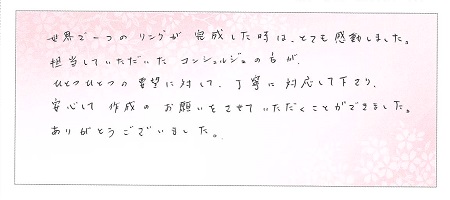 世界で一つのリングが完成した時は、とても感動しました。
担当していただいたコンシェルジュの方が、
ひとつひとつの要望に対して、丁寧に対応して下さり、
安心して作成のお願いをさせていただくことができました。
ありがとうございました。